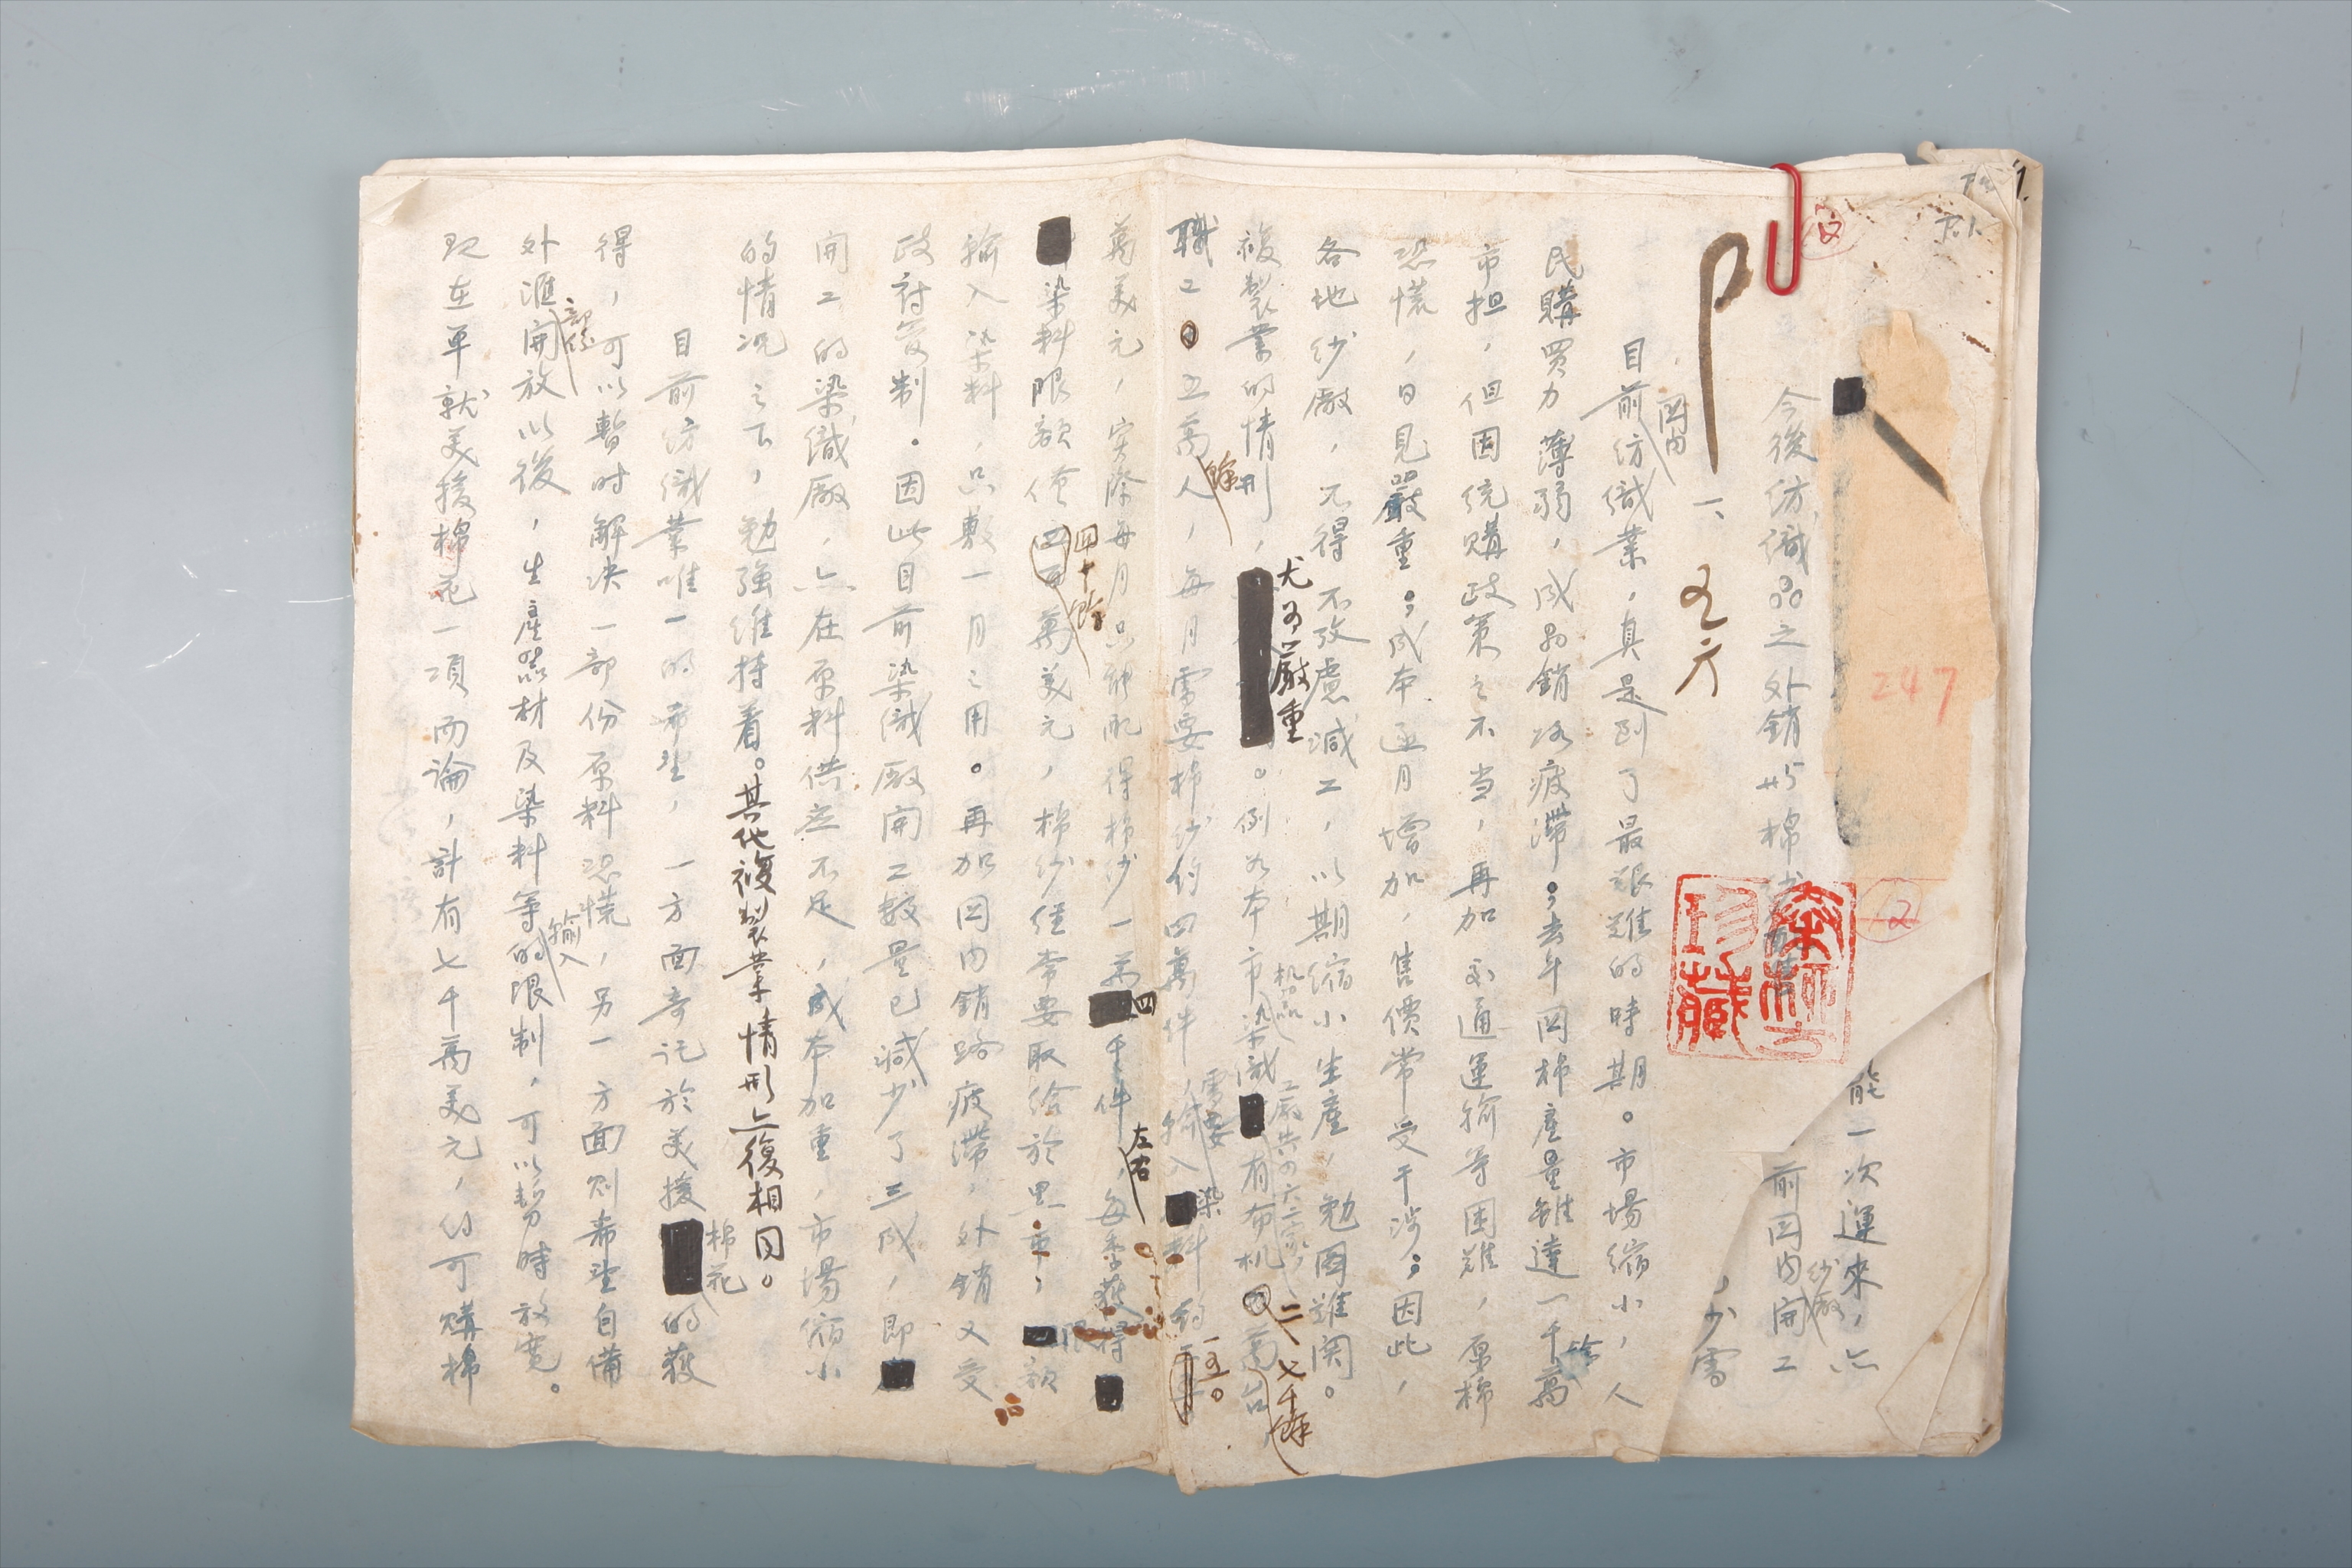 P.1.
1.
文
247
12
能一次運來，亦
今後紡織品之外銷與棉
前国内開工
紗廠
少需
一、
五六
目前紡織業，真是到了最艱難的時期。市場縮小，人
国内
民購買力薄弱，成品銷路疲滯；去年国棉產量雖達一千萬
餘
市担，但因統購政策之不当，再加交通運输等困难，原棉
恐慌，日見嚴重；成本逐月增加，售價常受干涉；因此，
各地紗廠，不得不攷慮減工，以期縮小生產，勉図難関。
尤为嚴重
複製業的情形，。例如本市染織有布机四萬台
机器
工廠共为六二家，
二、七千餘
職工五萬人，每月需要棉紗約四萬件，输入染料約
餘
需要
一五〇
萬美元，实際每月只能配得棉紗一萬四千件，每季獲得
左右
染料限額僅四百萬美元，棉紗經常要取給於黑市，限額
四十餘
輸入染料，只敷一月之用。再加国内銷路疲滯，外銷又受
政府管制。因此目前染織廠開工数量已減少了三成，即
開工的染織廠，亦在原料供应不足，成本加重，市場縮小
的情况之下，勉強維持着。其他複製業情形亦復相同。
目前紡織業唯一的希望，一方面寄託於美援的獲
棉花
得，可以暫时解决一部份原料恐慌，另一方面则希望自備
外滙開放以後，生產器材及染料等的限制，可以暫時放寬。
部份
输入
現在單就美援棉花一項而論，計有七千萬美元，約可購棉
珍藏